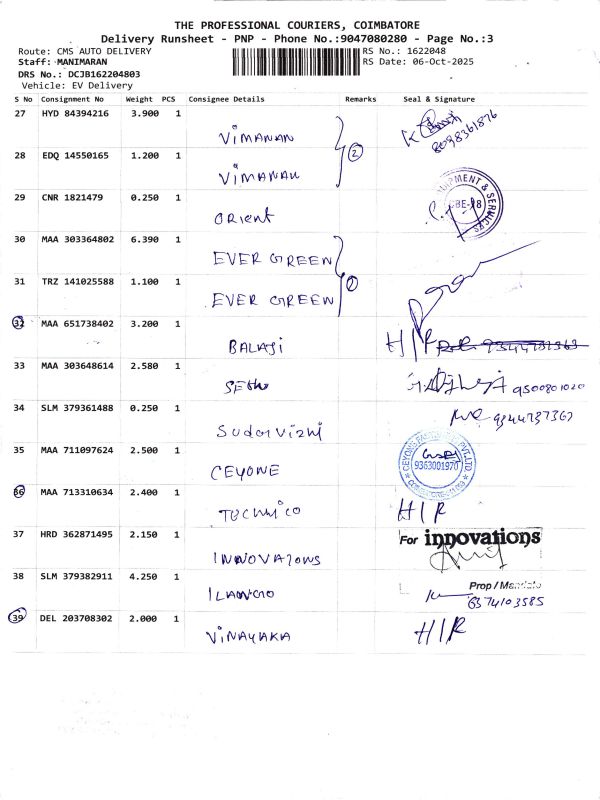 THE PROFESSIONAL COURIERS, COIMBATORE
Delivery Runsheet - PNP - Phone No.:9047080280 - Page No.:3
Route: CMS AUTO DELIVERY RS No.: 1622048
Staff: MANIMARAN RS Date: 06-Oct-2025
DRS No.: DCJB162204803
Vehicle: EV Delivery
S No Consignment No Weight PCS Consignee Details Remarks Seal & Signature
27 HYD 84394216 3.900 1
VIMANAN 8098361876
28 EDQ 14550165 1.200 1 2
VIMANAN
29 CNR 1821479 0.250 1
Orient & SERVICES
30 MAA 303364802 6.390 1
EVER GREEN
31 TRZ 141025588 1.100 1
EVER GREEN
32 MAA 651738402 3.200 1
BALAJI H/R
33 MAA 303648614 2.580 1
9500801020
34 SLM 379361488 0.250 1
9344737367
Sudarvizhi
35 MAA 711097624 2.500 1
CEYONE 9363001970
36 MAA 713310634 2.400 1
TECHNICO H/R
37 HRD 362871495 2.150 1
For innovations
INNOVATIONS
38 SLM 379382911 4.250 1
Prop /
ILANGO 6374103585
39 DEL 203708302 2.000 1
VINAYAKA H/R